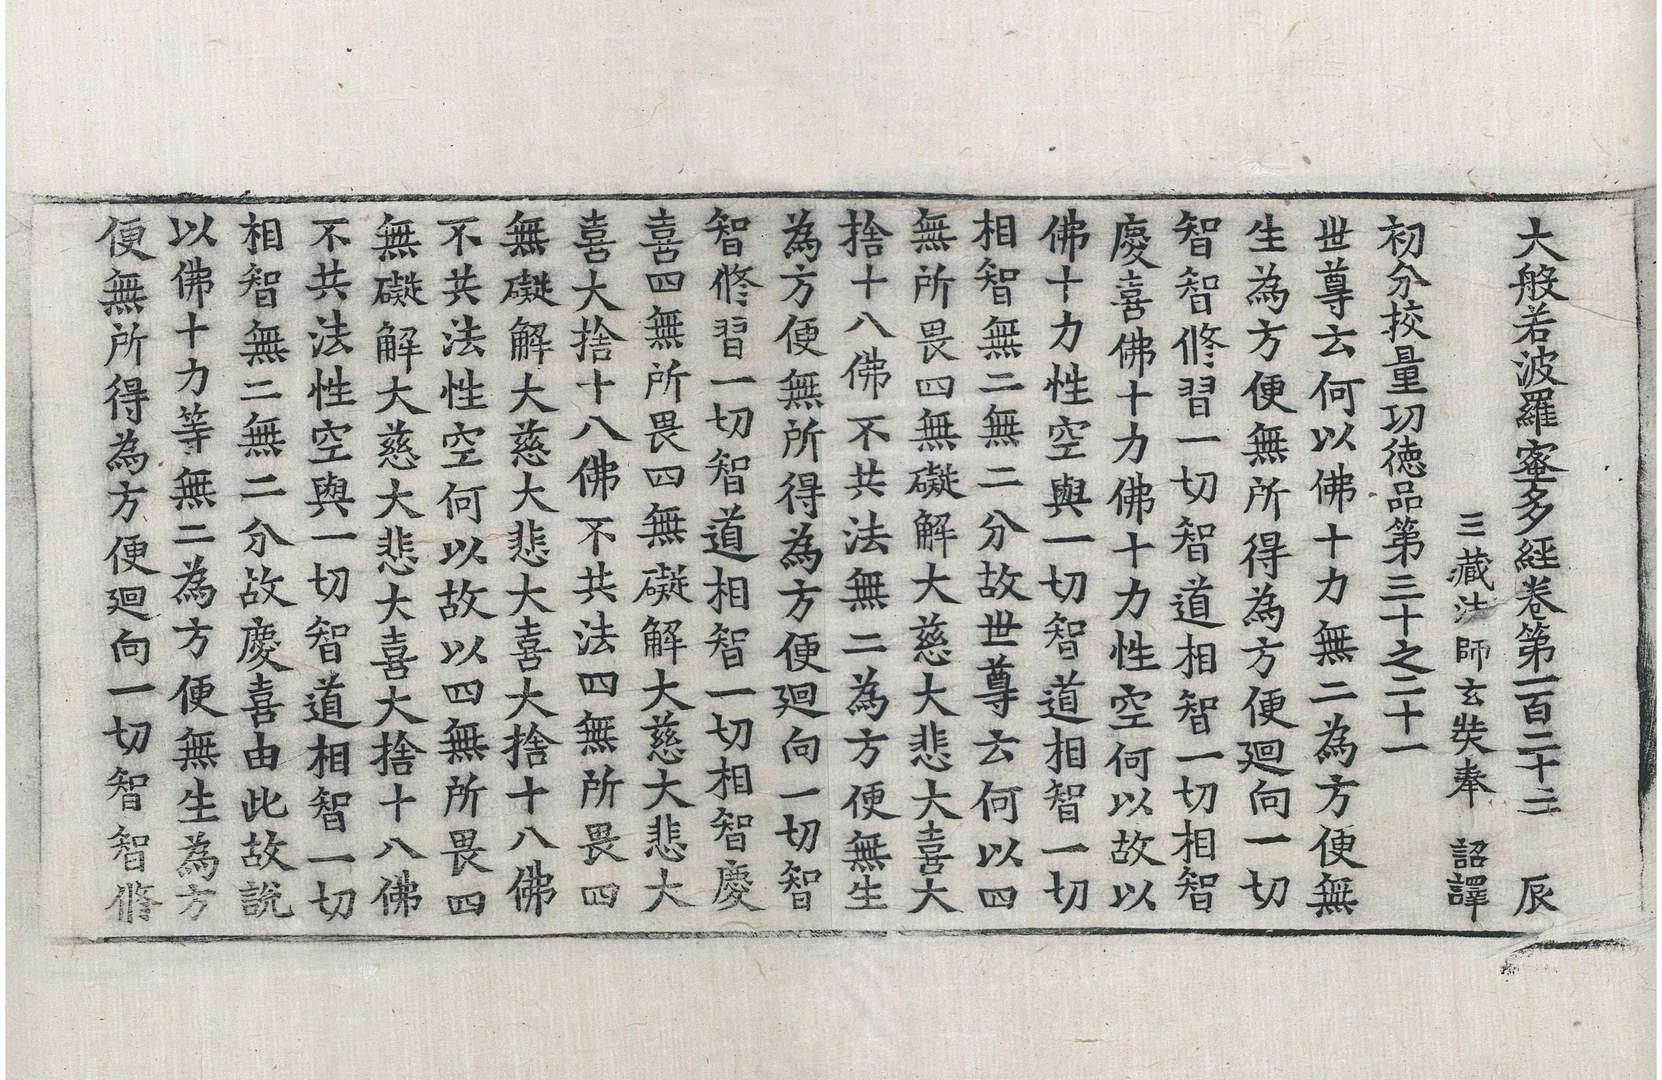 大般若波羅蜜多經卷第一百二十三 辰
三藏法師玄奘奉 詔譯
初分挍量功德品第三十之二十一
世尊云何以佛十力無二為方便無
生為方便無所得為方便迴向一切
智智修習一切智道相智一切相智
慶喜佛十力佛十力性空何以故以
佛十力性空與一切智道相智一切
相智無二無二分故世尊云何以四
無所畏四無礙解大慈大悲大喜大
捨十八佛不共法無二為方便無生
為方便無所得為方便迴向一切智
智修習一切智道相智一切相智慶
喜四無所畏四無礙解大慈大悲大
喜大捨十八佛不共法四無所畏四
無礙解大慈大悲大喜大捨十八佛
不共法性空何以故以四無所畏四
無礙解大慈大悲大喜大捨十八佛
不共法性空與一切智道相智一切
相智無二無二分故慶喜由此故說
以佛十力等無二為方便無生為方
便無所得為方便迴向一切智智修